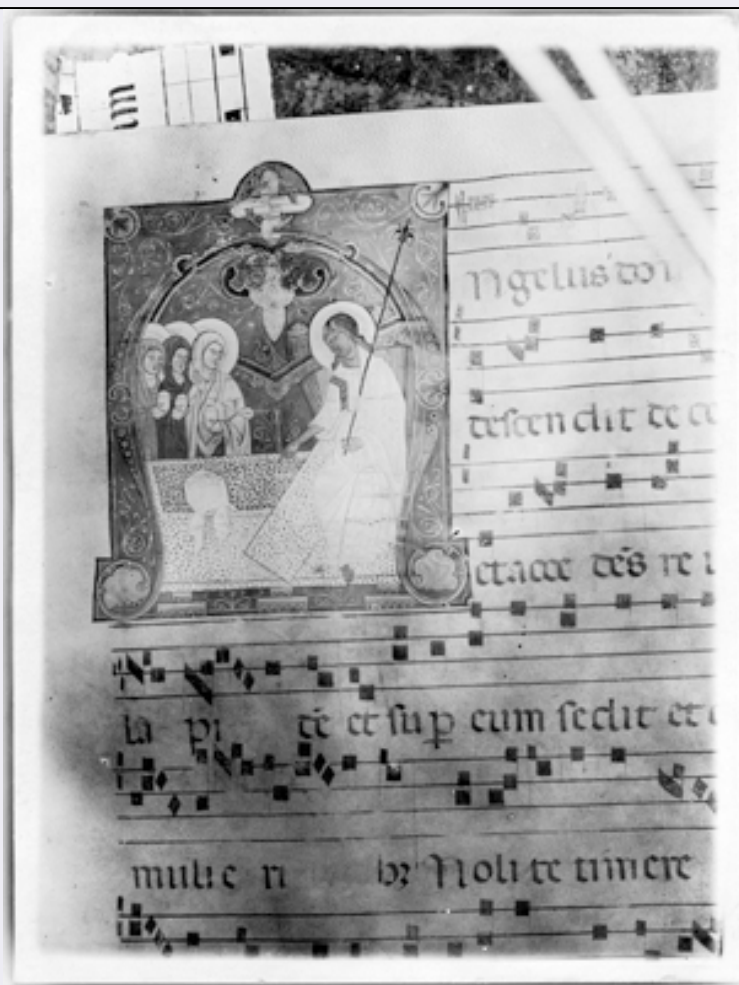 ngelus doı
descendit de ce
et acce dēs re u
la pi dē et sup eum sedit et d
mulie ri bꝫ Nolite timere